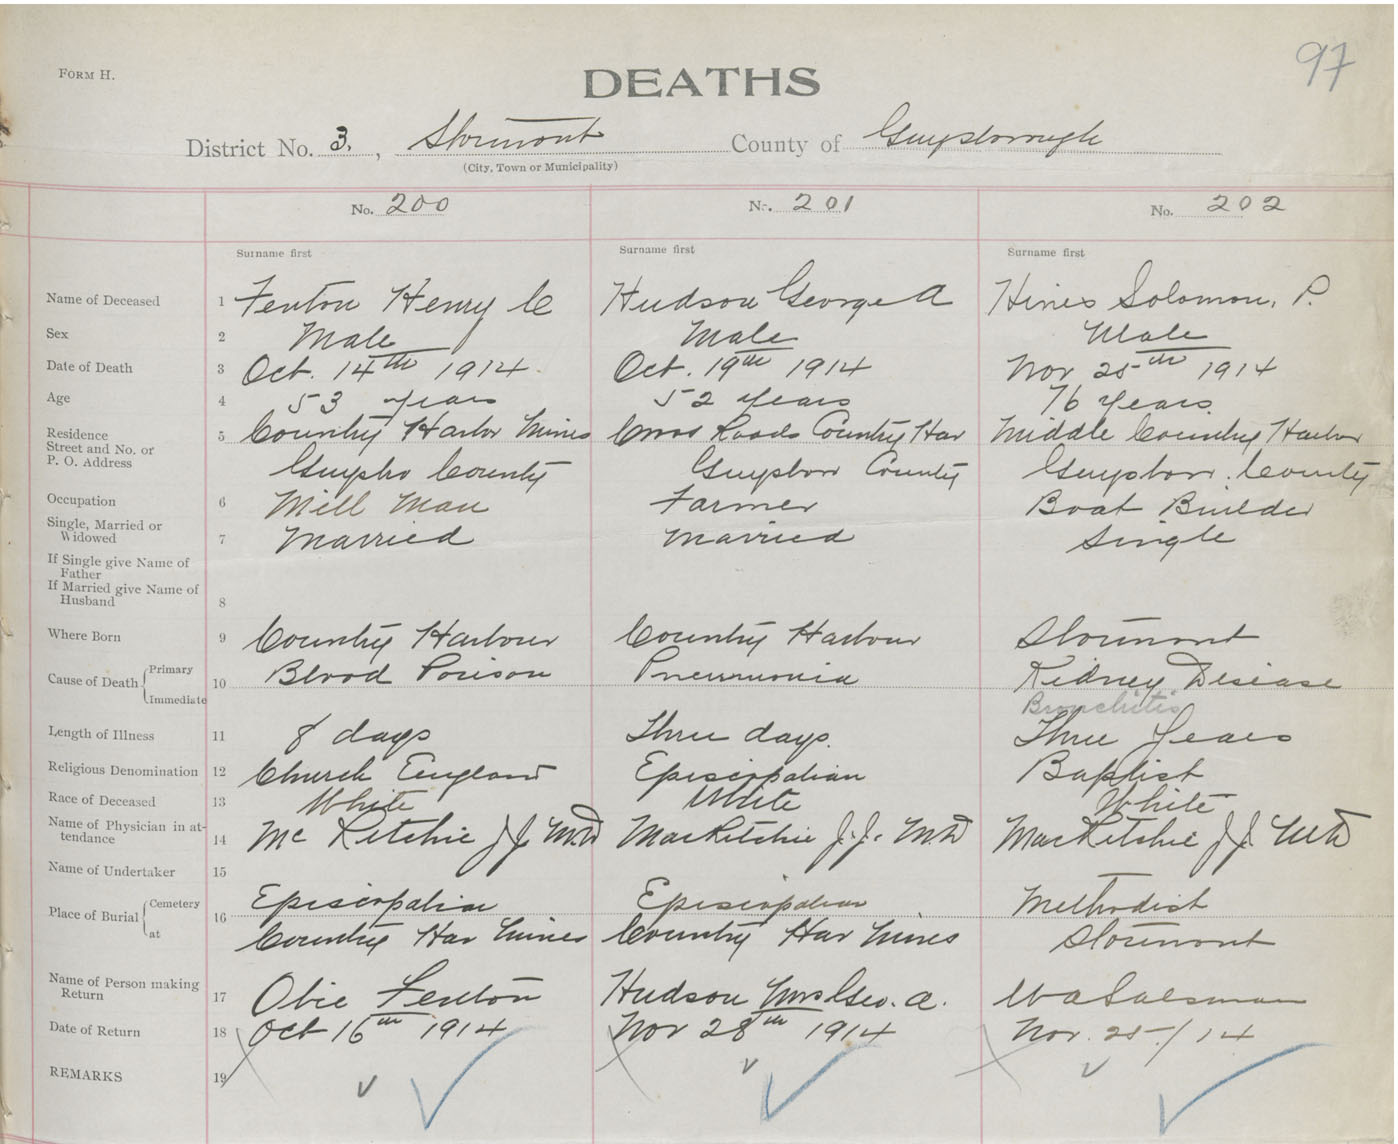 97
FORM H.
DEATHS
District No. 3, Stormont County of Guysborough
(City, Town or Municipality)
No. 200 No. 201 No. 202
Surname first Surname first Surname first
Name of Deceased 1 Fenton Henry C Hudson George A Hines Solomon, P.
Sex 2 Male Male Male
Date of Death 3 Oct. 14th 1914 Oct. 19th 1914 Nov 25th 1914
Age 4 53 years 52 years 76 years
Residence
Street and No. or
P. O. Address
5 Country Harbor Mines Cross Roads Country Har Middle Country Harbor
Guysbo County Guysboro County Guysboro. County
Occupation 6 Mill Man Farmer Boat Builder
Single, Married or
Widowed 7 Married Married Single
If Single give Name of
Father
If Married give Name of
Husband 8
Where Born 9 Country Harbour Country Harbour Stormont
Cause of Death Primary Immediate 10 Blood Poison Pneumonia Kidney Disease
Bronchitis
Length of Illness 11 8 days Three days. Three Years
Religious Denomination 12 Church England Episcopalian Baptist
Race of Deceased 13 White White White
Name of Physician in at-
tendance 14 McRitchie J.J. M.D MacRitchie J.J. M.D MacRitchie J.J. M.D
Name of Undertaker 15
Place of Burial Cemetery at 16 Episcopalian Episcopalian Methodist
Country Har Mines Country Har Mines Stormont
Name of Person making
Return 17 Obie Fenton Hudson Mrs Geo. A. W A Salsman
Date of Return 18 Oct 16th 1914 Nov 28th 1914 Nov. 25/14
REMARKS 19